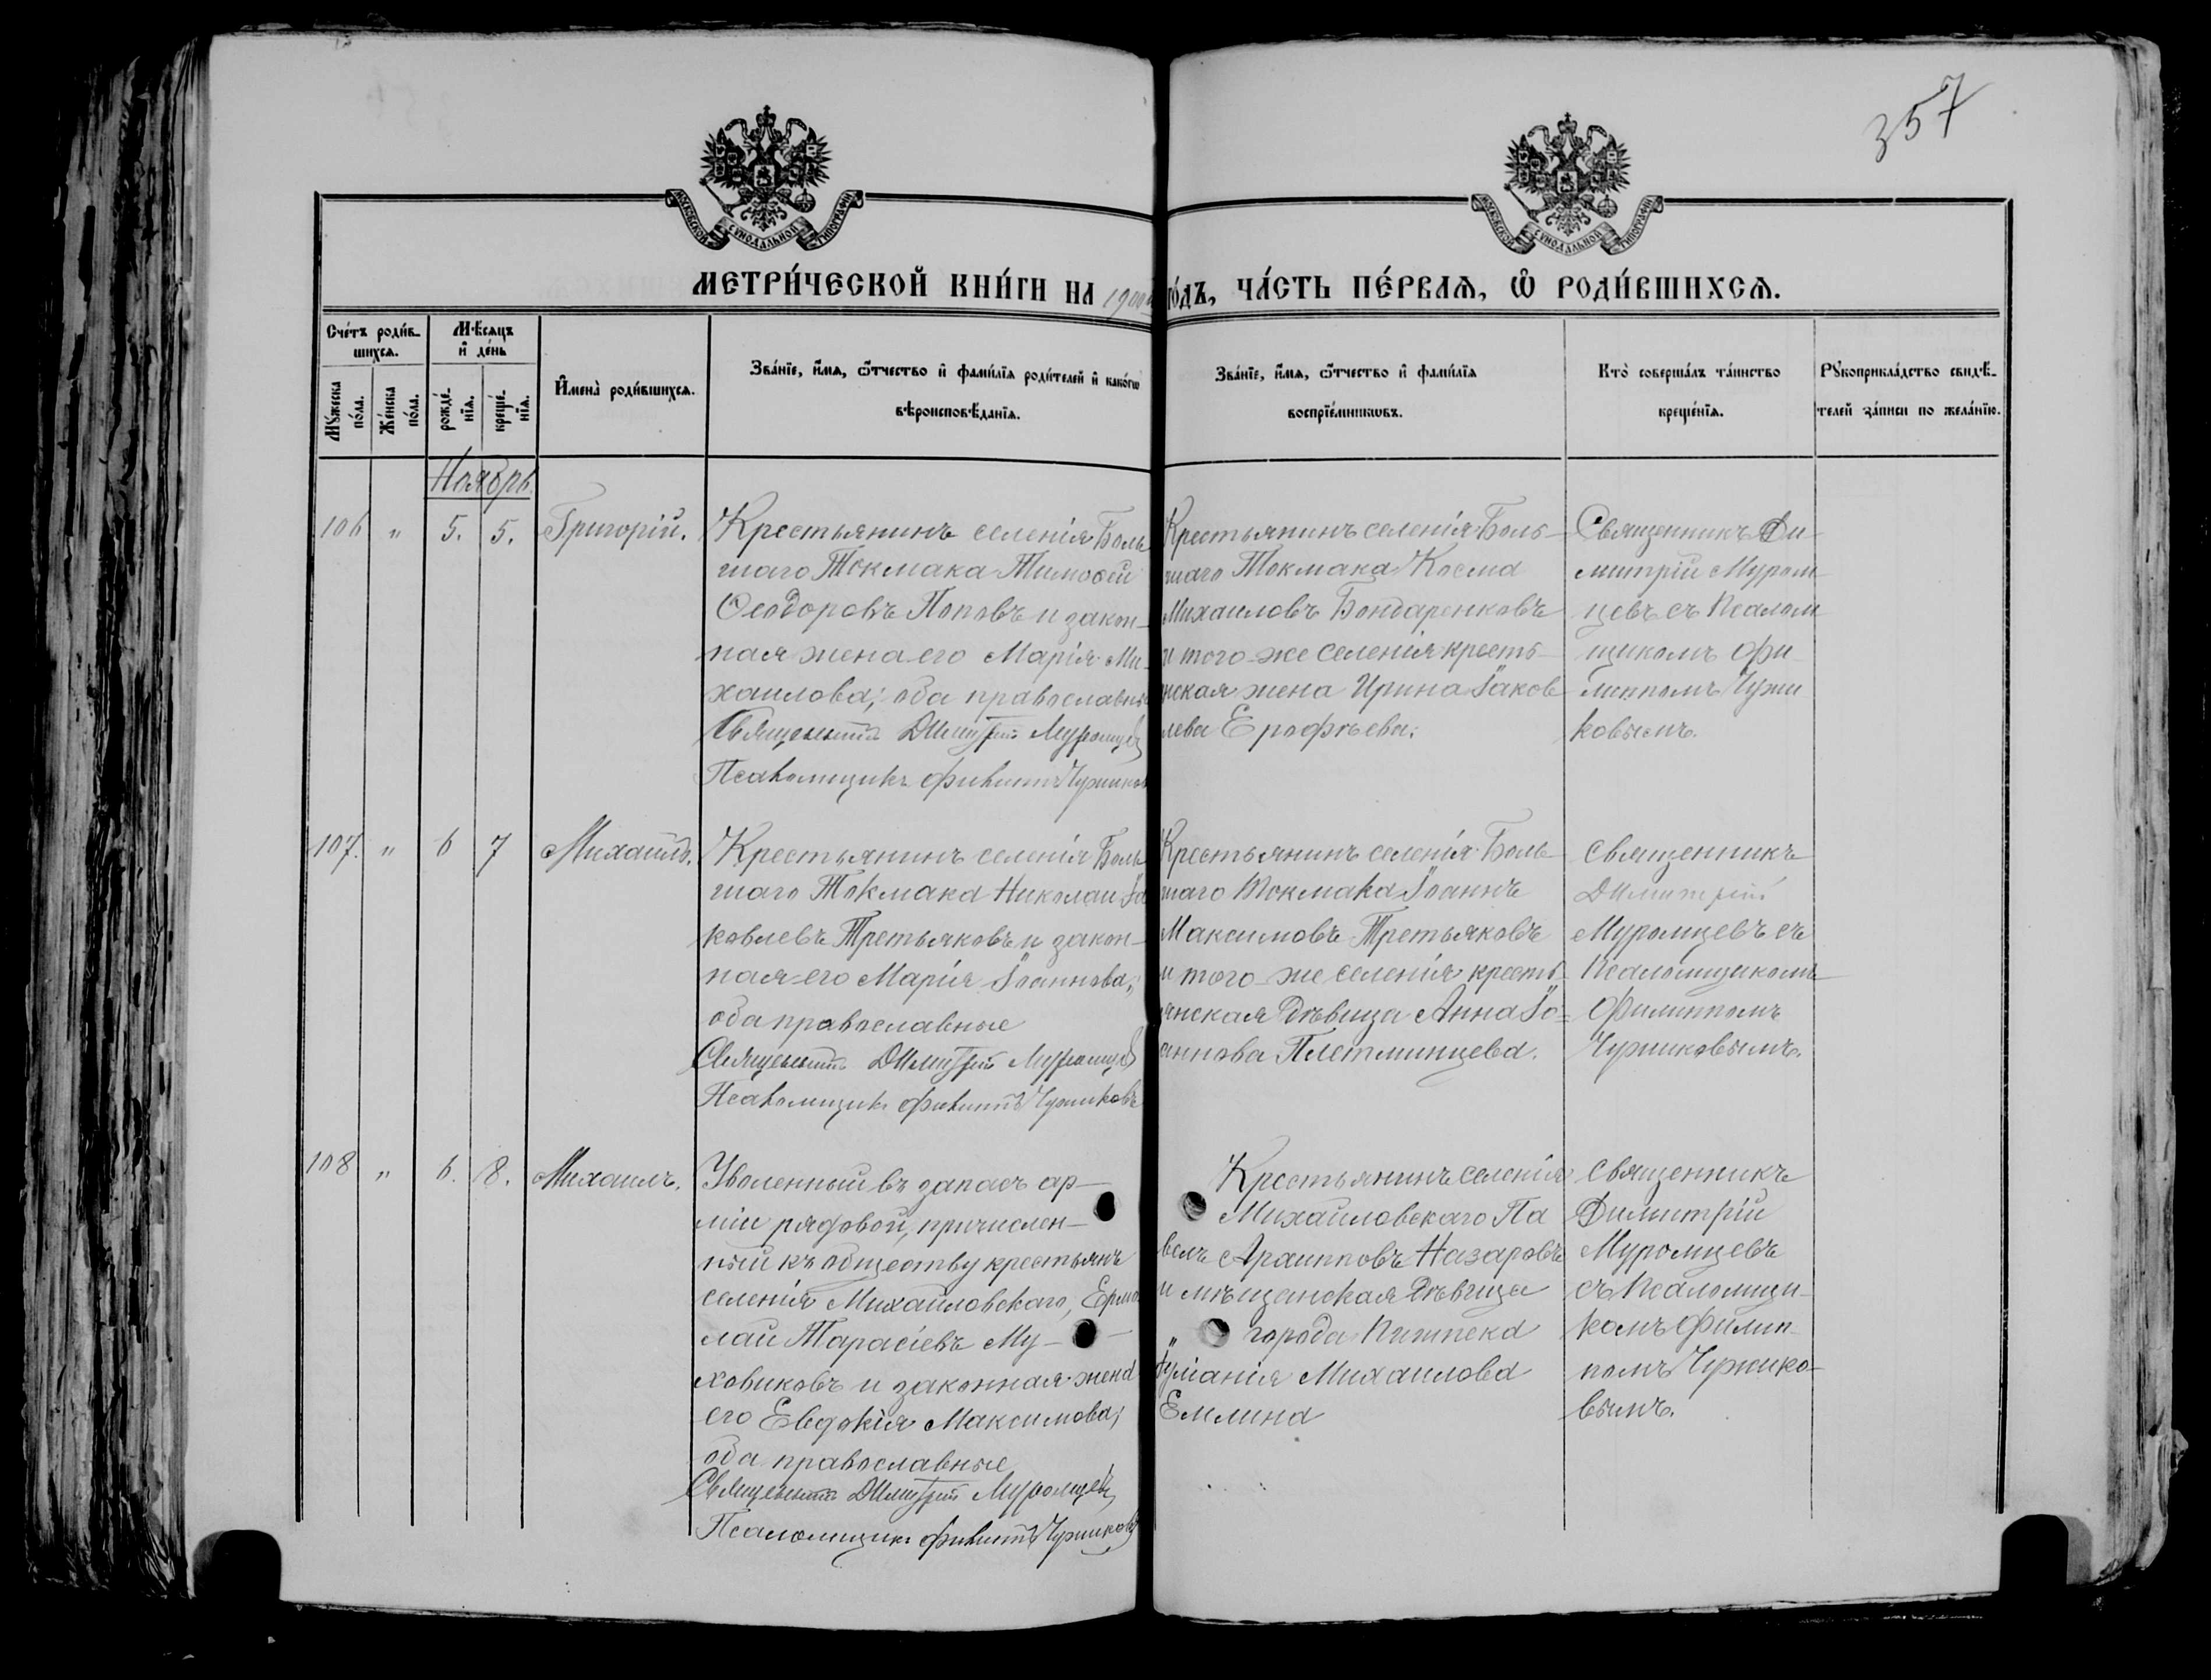 357
МОСКОВСКОЙ СѴНОДАЛЬНОЙ ТИПОГРАФІИ
МОСКОВСКОЙ СѴНОДАЛЬНОЙ ТИПОГРАФІИ
МЕТРИ́ЧЕСКОЙ КНИ́ГИ НА 1900 го́дъ, ЧА́СТЬ ПЕ́РВАѦ, Ѽ РОДИ́ВШИХСѦ.
Сче́тъ роди́в-
шихсѧ.
Мꙋжеска
по́ла.
Же́нска
по́ла.
Мѣ́сѧцъ
и҆ де́нь
рожде́-
нїѧ.
креще́-
нїѧ.
И҆мена̀ роди́вшихсѧ.
Зва́нїе, и҆́мѧ, ѻ҆́тчество и҆ фами́лїѧ роди́телей и҆ како́гѡ
вѣроисповѣ́данїѧ.
Зва́нїе, и҆́мѧ, ѻ҆́тчество и҆ фами́лїѧ
воспрїе́мникѡвъ.
Кто̀ соверша́лъ та́инство
креще́нїѧ.
Рꙋкоприкла́дство свидѣ́-
телей за́писи по жела́нїю.
Ноябрь.
106 " 5. 5. Григорій.
Крестьянинъ селенія Боль
шаго Токмака Тимоѳей
Ѳеодоровъ Поповъ и закон-
ная жена его Марія Ми-
хаилова; оба православные
Священникъ Димитрій Муромцевъ
Псаломщикъ Филиппъ Чуриковъ
Крестьянинъ селенія Боль-
шаго Токмака Косма
Михаиловъ Бондаренковъ
и того-же селенія кресть-
янская жена Ирина Іаков
лева Ерофѣева.
Священникъ Ди-
митрій Муром-
цевъ съ Псалом
щикомъ Фи-
липпомъ Чури
ковымъ.
107. " 6 7 Михаилъ.
Крестьянинъ селенія Боль
шаго Токмака Николай Іа
ковлевъ Третьяковъ и закон-
ная его Марія Іоаннова;
оба православные
Священникъ Димитрій Муромцевъ
Псаломщикъ Филиппъ Чуриковъ
Крестьянинъ селенія Боль
шаго Токмака Іоаннъ
Максимовъ Третьяковъ
и того-же селенія кресть-
янская дѣвица Анна Іо-
аннова Плетминцева.
Священникъ
Димитрій
Муромцевъ съ
Псаломщикомъ
Филиппомъ
Чуриковымъ.
108 " 6. 8. Михаилъ.
Уволенный въ запасъ ар-
міи рядовой, причислен-
ный къ обществу крестьянъ
селенія Михайловскаго, Ермо
лай Тарасіевъ Му-
ховиковъ и законная жена
его Евдокія Максимова;
оба православные
Священникъ Димитрій Муромцевъ
Псаломщикъ Филиппъ Чуриковъ
Крестьянинъ селенія
Михайловскаго Па
велъ Архипповъ Назаровъ
и мѣщанская дѣвица
" города Пишпека
Іуліанія Михаилова
Емлина
Священникъ
Димитрій
Муромцевъ
съ Псаломщи-
комъ Филип-
помъ Чурико-
вымъ.